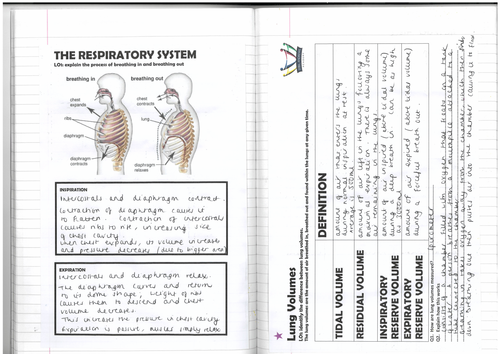 THE RESPIRATORY SYSTEM
LOs: explain the process of breathing in and breathing out
breathing in
breathing out
chest
expands
ribs
diaphragm
diaphragm
contracts
chest
contracts
lung
diaphragm
diaphragm
relaxes
INSPIRATION
Intercostals and diaphragm contract.
Contraction of diaphragm causes it
to flatten. Contraction of intercostals
causes ribs to rise, increasing size
of chest cavity.
When chest expands, its volume increases
and pressure decreases (due to bigger area)
EXPIRATION
Intercostals and diaphragm relax.
The diaphragm curves and returns
to its dome shape, weight of ribs
causes them to descend and chest
volume decreases.
This increases the pressure in chest cavity.
Expiration is passive, muscles simply relax
Lung Volumes
LOs: identify the difference between lung volumes.
The lung volumes are the amount of air breathed in, breathed out and found within the lungs at any given time.
DEFINITION
TIDAL VOLUME
amount of air that enters the lung
during normal inspiration at rest
average is 500ml
RESIDUAL VOLUME
amount of air left in the lungs following a
maximal expiration. There is always some
air remaining in the lungs
INSPIRATORY
RESERVE VOLUME
amount of air inspired (above tidal volume)
during a deep breath in. Can be as high
as 3000ml
EXPIRATORY
RESERVE VOLUME
amount of air expired (above tidal volume)
during a forceful breath out
Q1. How are lung volumes measured?
Q2. Explain how this works
consists of a chamber filled with oxygen that floats on a tank
of water. A person breathes from a mouthpiece attached to a